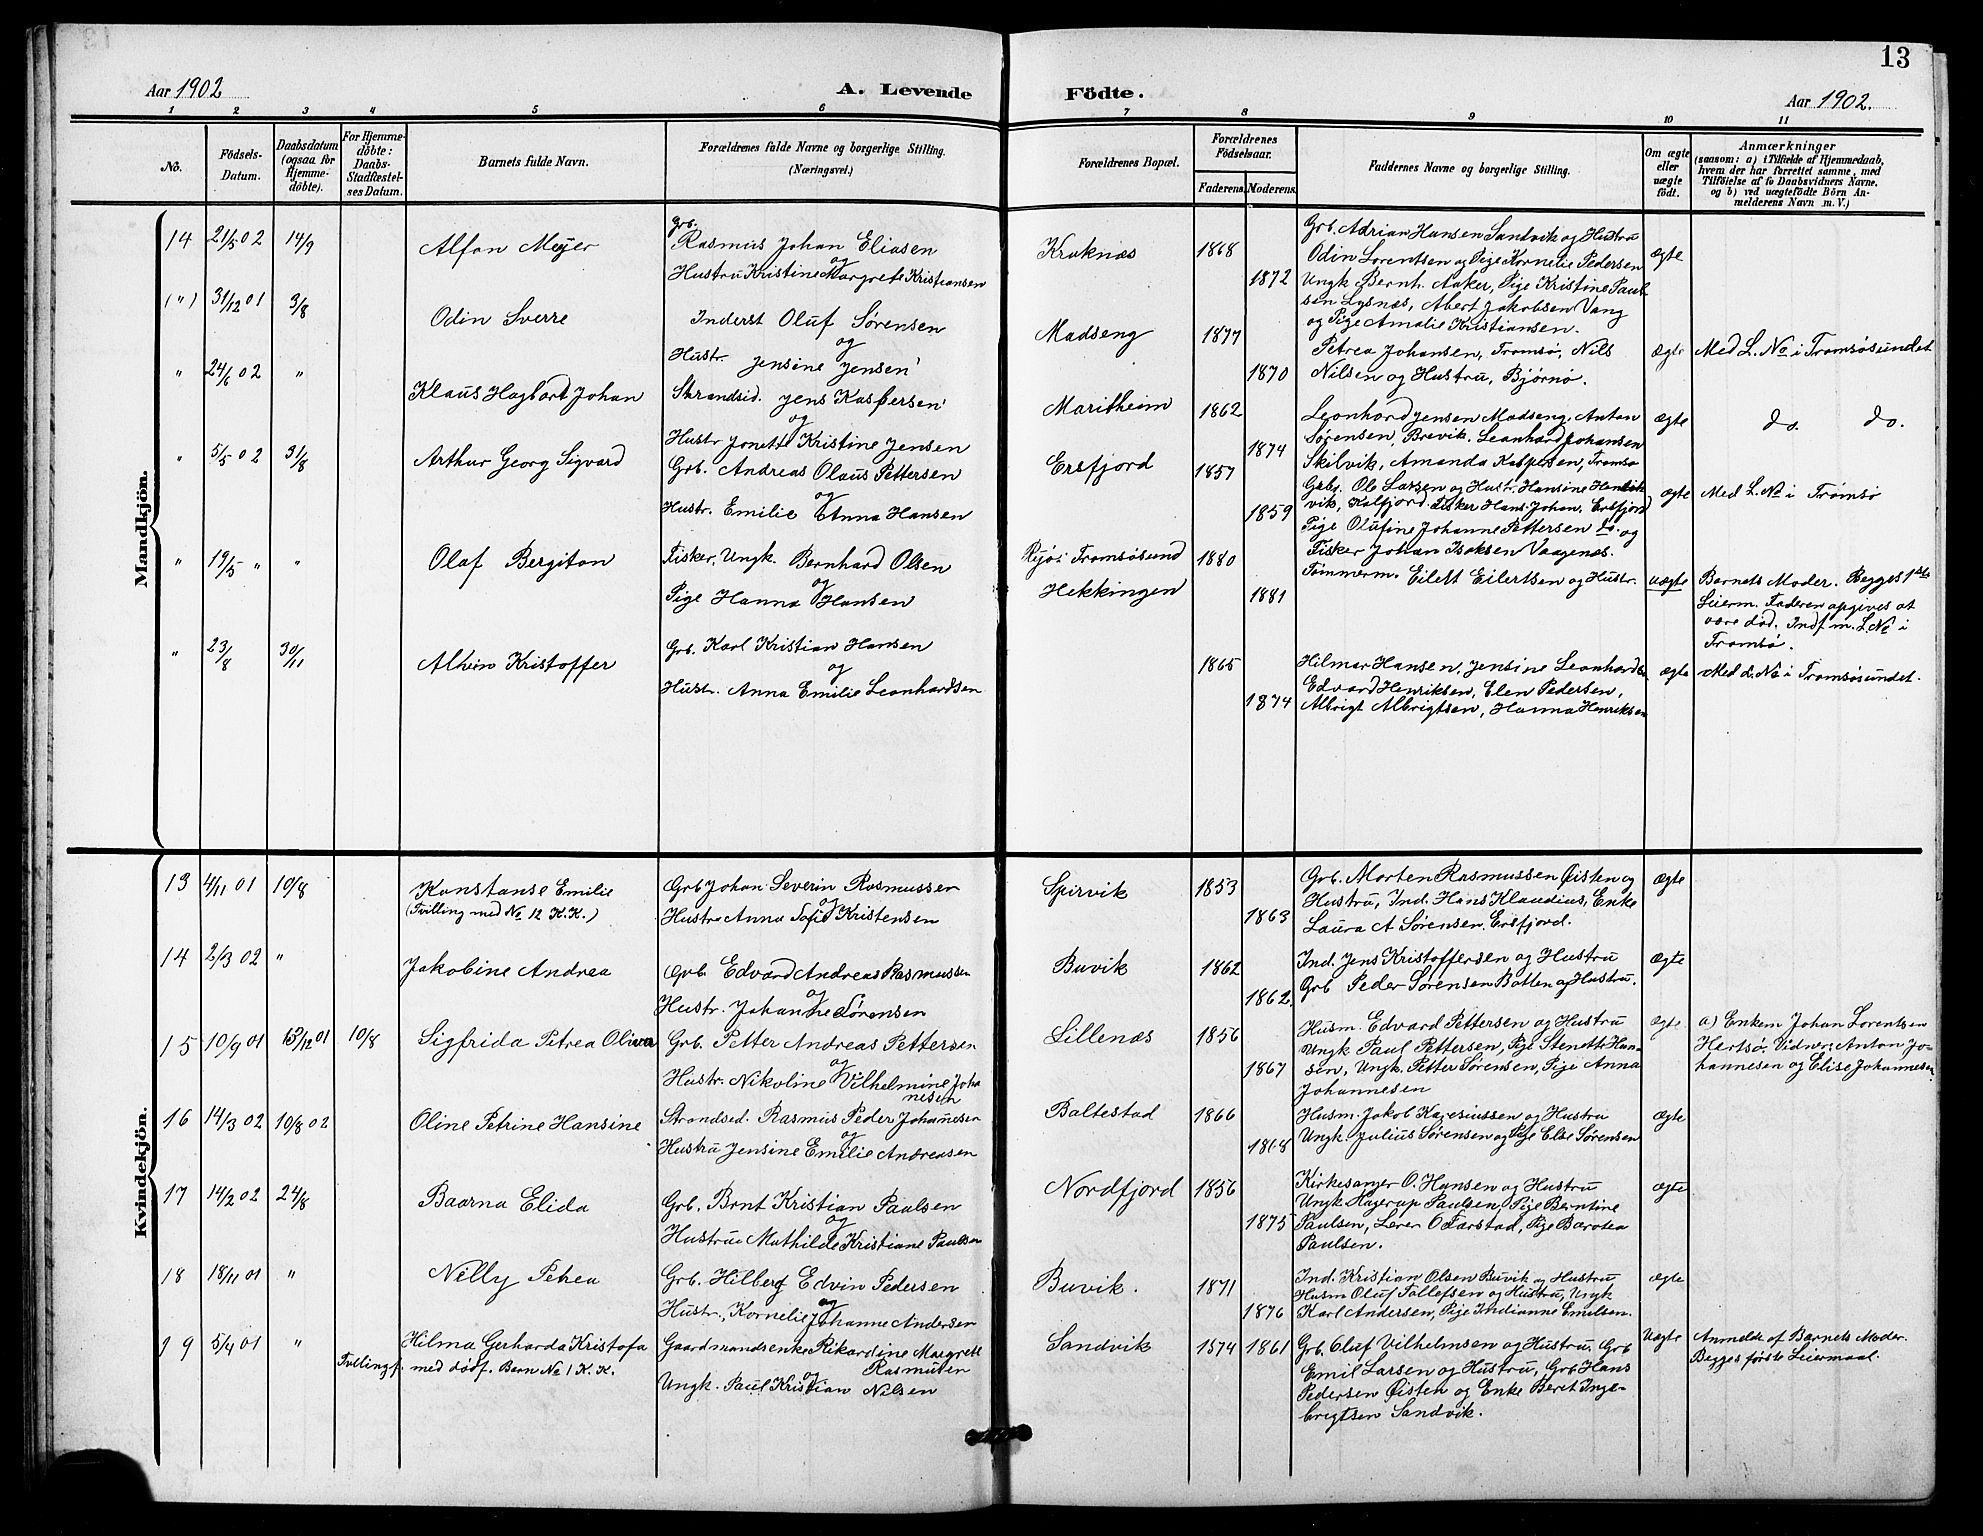 13
Aar 1902 A. Levende Födte. Aar 1902.
1 2 3 4 5 6 7 8 9 10 11
No.
Födsels-Datum.
Daabsdatum (ogsaa for Hjemme-döbte).
For Hjemme-döbte: Daabs-Stadfæstel-ses Datum.
Barnets fulde Navn.
Forældrenes fulde Navne og borgerlige Stilling.
(Næringsvei.)
Forældrenes Bopæl.
Forældrenes Födselsaar.
Faderens. Moderens.
Faddernes Navne og borgerlige Stilling.
Om ægte eller uægte født.
Anmærkninger
(saasom: a) i Tilfælde af Hjemmedaab,
hvem der har forrettet samme, med
Tilföielse af to Daabsvidners Navne,
og b) ved uægtefödte Börn An-
melderens Navn m. V.)
Mandkjön.
14 21/5 02 14/9 Alfon Meyer
Grb. Rasmus Johan Eliasen
og
Hustru Kristine Margrete Kristiansen
Kraknæs 1868 1872
Grb. Adrian Hansen Sandvik og Hustru
Odin Lorentsen og Pige Kornelie Pedersen
Ungk Bernh. Aaker, Pige Kristine Paul-
sen Lysnæs, Abert Jakobsen Vang
og Pige Amalie Kristiansen.
ægte
(") 31/12 01 3/8 Odin Sverre
Inderst Oluf Sørensen
og
Hustr. Jensine Jensen
Madseng 1877 1870
Petrea Johansen, Tromsø, Nils
Nilsen og Hustru, Bjørnø.
ægte
Med L. No i Tromsøsundet
" 24/6 02 " Klaus Hagbart Johan
Strandsid. Jens Kaspersen
og
Hustr Jonette Kristine Jensen
Maritheim 1862 1874
Leonhard Jensen Madseng, Anton
Sørensen, Brevik. Leonhard Johansen
Skilvik, Amanda Kaspersen, Tromsø
ægte
do. do.
" 5/5 02 31/8 Arthur Georg Sigvard
Grb. Andreas Olaus Pettersen
og
Hustr. Emilie Anna Hansen
Ersfjord 1857 1859
Grbr. Ole Larsen og Hustr. Hansine
vik, Kalfjord Fisker Hans Johan, Ersfjord
Pige Olufine Johanne Pettersen do. og
Fisker Johan Isaksen Vaagenæs.
ægte
Med L. No i Tromsø
" 19/5 " " Olaf Bergiton
Fisker, Ungk. Bernhard Olsen
og
Pige Hanna Hansen
Tromsøsund 1880
Hekkingen 1881
Tømmerm. Eilett Eilertsen og Hustr.
uægte
Barnets Moder. Begges 1ste
Leierm. Faderen opgives at
være død. Indf. m. L. No i
Tromsø.
" 23/8 30/11 Alvin Kristoffer
Grb. Karl Kristian Hansen
og
Hustr. Anna Emilie Leonhardsen
1865 1874
Hilmar Hansen, Jensine Leonhardsen
Edvard Henriksen, Elen Pedersen,
Albrigt Albrigtsen, Hanna Henriksen
ægte
Med L. No i Tromsøsundet.
Kvindekjön.
13 4/11 01 10/8 Konstanse Emilie
(Tvilling med No 12 K. K.)
Grb Johan Severin Rasmussen
og
Hustru Anna Sofie Kristensen
Spirvik 1853 1863
Grb. Morten Rasmussen Øisten og
Hustru, Ind. Hans Klaudius, Enke
Laura A Sørensen. Ersfjord.
ægte
14 2/3 02 " Jakobine Andrea
Grb. Edvard Andreas Rasmussen
og
Hustr. Johanne Sørensen
Buvik 1862 1862.
Ind. Jens Kristoffersen og Hustru
Grb Peder Sørensen Botten og Hustru.
ægte
15 10/9 01 13/12 01 10/8 Sigfrida Petrea Olivia
Grb. Petter Andreas Pettersen
og
Hustr. Nikoline Vilhelmine Joha
nesen
Lillenæs 1856 1867
Husm. Edvard Pettersen og Hustru
Ungk Paul Pettersen, Pige Stenette Han-
sen, Ungk. Petter Sørensen, Pige Anna
Johannesen
ægte
a) Enkem. Johan Lorentsen
Hertsø. Vidner: Anton Jo-
hannesen og Elise Johannesen.
16 14/3 02 10/8 02 Oline Petrine Hansine
Strandsed. Rasmus Peder Johannesen
og
Hustru Jensine Emilie Andreasen
Baltestad 1866 1868
Husm. Jakob Karesiussen og Hustru
Ungk. Julius Sørensen og Pige Else Sørensen
ægte
17 14/2 02 24/8 Baarna Elida
Grb. Brnt Kristian Paulsen
og
Hustrue Mathilde Kristiane Paulsen
Nordfjord 1856 1875
Kirkesanger O. Hansen og Hustru
Ungk Hagerup Paulsen, Pige Berntine
Paulsen, Lærer O Farstad, Pige Barotea
Paulsen.
ægte
18 18/11 01 " Nilly Petrea
Grb. Hilberg Edvin Pedersen
og
Hustr., Kornelie Johanne Andersen
Buvik. 1871 1876
Ind. Kristian Olsen Buvik og Hustru,
Husm Oluf Tollefsen og Hustru, Ungk
Karl Andersen, Pige Indianne Emilsen.
ægte
19 5/4 01 " Hilma Gerharda Kristofa
Tvilling f. med dødf. Barn No 1 K. K.
Gaardmandsenke Rikardine Margrete
Rasmusen
og
Ungk. Paul Kristian Nilsen
Sandvik 1874 1861
Grb. Oluf Vilhelmsen og Hustru, Grb
Emil Larsen og Hustru, Grb Hans
Pedersen Øisten og Enke Beret Inge-
brigtsen Sandvik.
Uægte
Anmeldt af Barnets Moder.
Begges første Leiermaal.